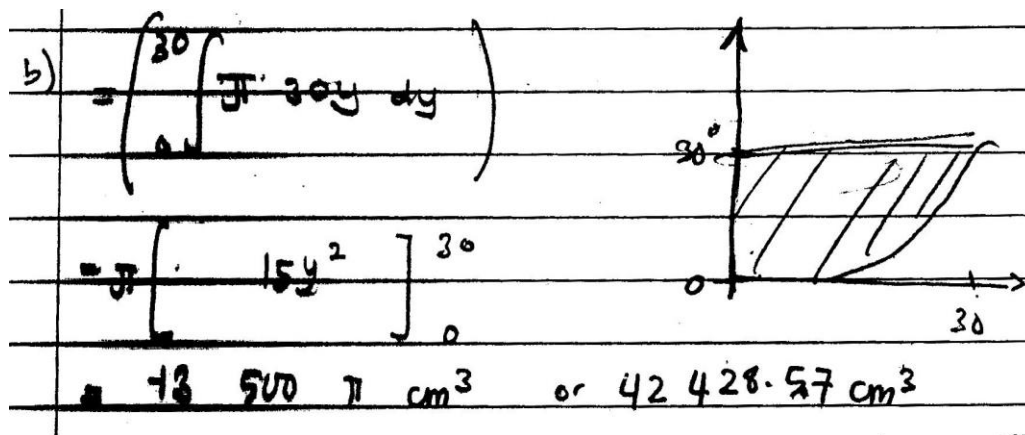 b) = ( 30 ∫ 0 π 30y dy )
= π [ 15y² ] 30 0
= 13 500 π cm³ or 42 428.57 cm³
30
0
30